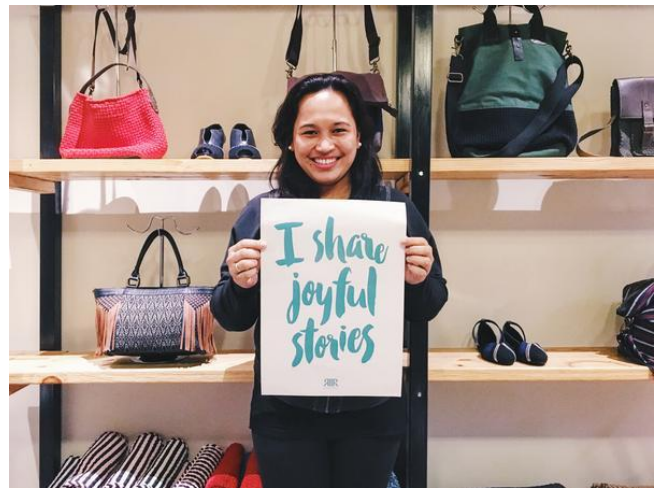 I share
joyful
stories